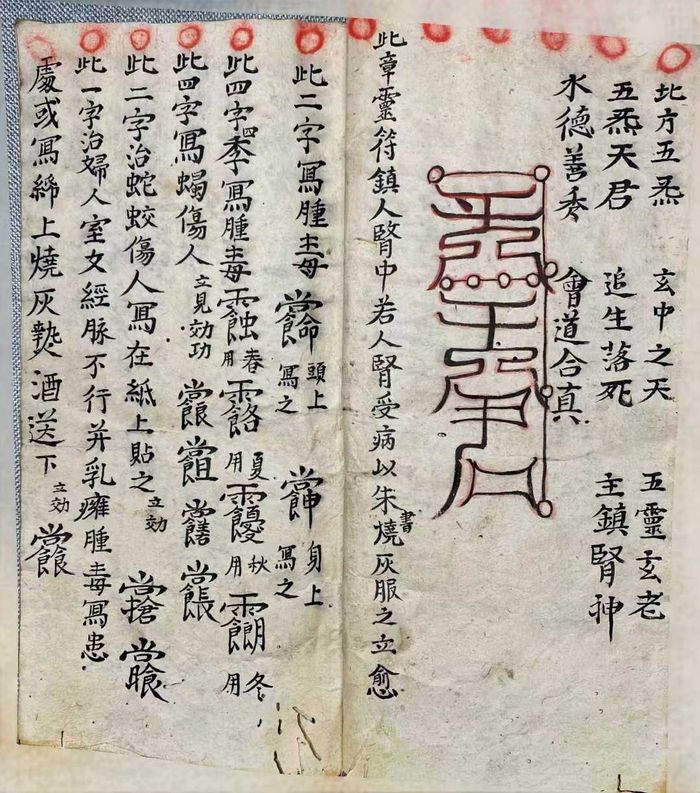 北方五炁　玄中之天　五靈玄老
五炁天君　追生落死　主鎮腎神
水德善秀　會道合真
此章靈符鎮人腎中若人腎受病以朱書燒灰服之立愈
此二字寫腫毒　頭上寫之　身上寫之
此四字四季寫腫毒　春用　夏用　秋用　冬用
此四字寫蝎傷人　立見効功
此二字治蛇蛟傷人寫在紙上貼之　立効
此一字治婦人室女經脉不行并乳癰腫毒寫患
處或寫綿上燒灰熱酒送下　立効